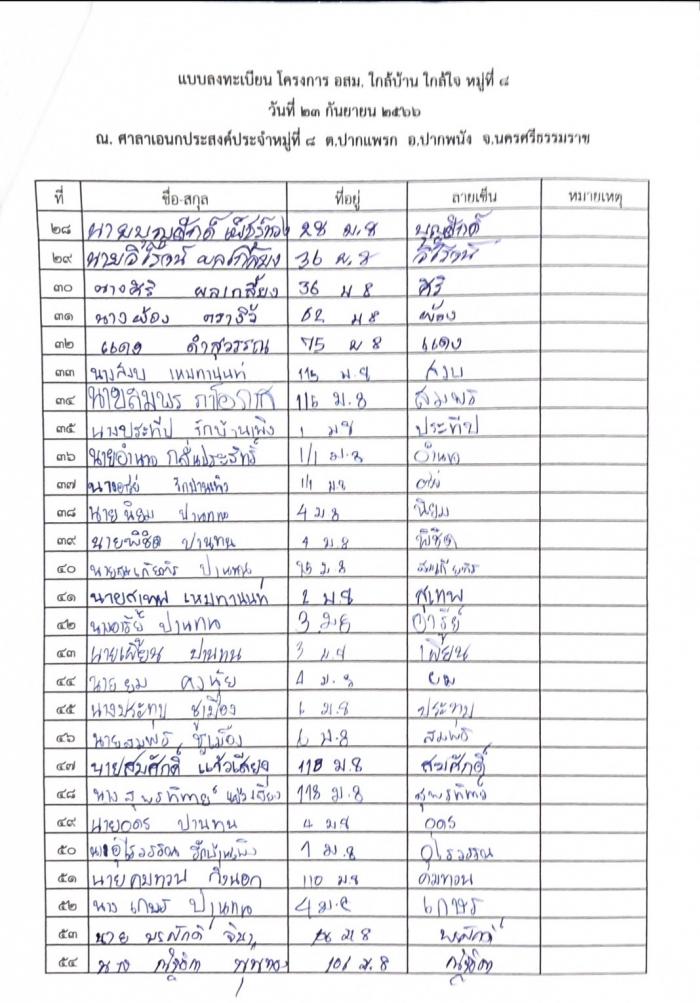 แบบลงทะเบียน โครงการ อสม. ใกล้บ้าน ใกล้ใจ หมู่ที่ ๘
วันที่ ๒๓ กันยายน ๒๕๖๖
ณ. ศาลาเอนกประสงค์ประจำหมู่ที่ ๘ ต.ปากแพรก อ.ปากพนัง จ.นครศรีธรรมราช
ที่ ชื่อ-สกุล ที่อยู่ ลายเซ็น หมายเหตุ
๒๘ นายบุญศักดิ์ 28 ม.8 บุญศักดิ์
๒๙ นายวิโรจน์ ผลเกลี้ยง 36 ม.8 วิโรจน์
๓๐ นางศิริ ผลเกลี้ยง 36 ม 8 ศิริ
๓๑ นางผ้อง 62 ม 8 ผ้อง
๓๒ แดง ดำสุวรรณ 75 ม 8 แดง
๓๓ นางสงบ เหมทานนท์ ม.8 สงบ
๓๔ นายสมพร ม.8 สมพร
๓๕ นางประทีป รักบ้านเพิง 1 ม8 ประทีป
๓๖ นายอำนวย กลิ่นประสิทธิ์ 1/1 ม.8 อำนวย
๓๗ รักบ้านเพิง 1/1 ม.8
๓๘ นายนิยม ปานทน 4 ม 8 นิยม
๓๙ นายพิชิต ปานทน 4 ม 8 พิชิต
๔๐ นายสมเกียรติ ปานทน ม 8 สมเกียรติ
๔๑ นายสุเทพ เหมทานนท์ 2 ม.8 สุเทพ
๔๒ นางอารีย์ ปานทน 3 ม.8 อารีย์
๔๓ นายเผี้ยน ปานทน 3 ม.8 เผี้ยน
๔๔ นายยม 4 ม.8 ยม
๔๕ นางประทุม ชูเมือง 6 ม.8 ประทุม
๔๖ นายสมพร ชูเมือง 6 ม.8 สมพร
๔๗ นายสมศักดิ์ แก้วเสียง 118 ม.8 สมศักดิ์
๔๘ นางสุพรทิพย์ แก้วเสียง 118 ม.8 สุพรทิพย์
๔๙ นายอุดร ปานทน 4 ม8 อุดร
๕๐ นางอุไรวรรณ รักบ้านเพิง 1 ม.8 อุไรวรรณ
๕๑ นายคมทวน กิ่งนอก 110 ม8 คมทวน
๕๒ นาง เกษร ปานทน 4 ม.8 เกษร
๕๓ นาย ม 8
๕๔ นาง 101 ม.8